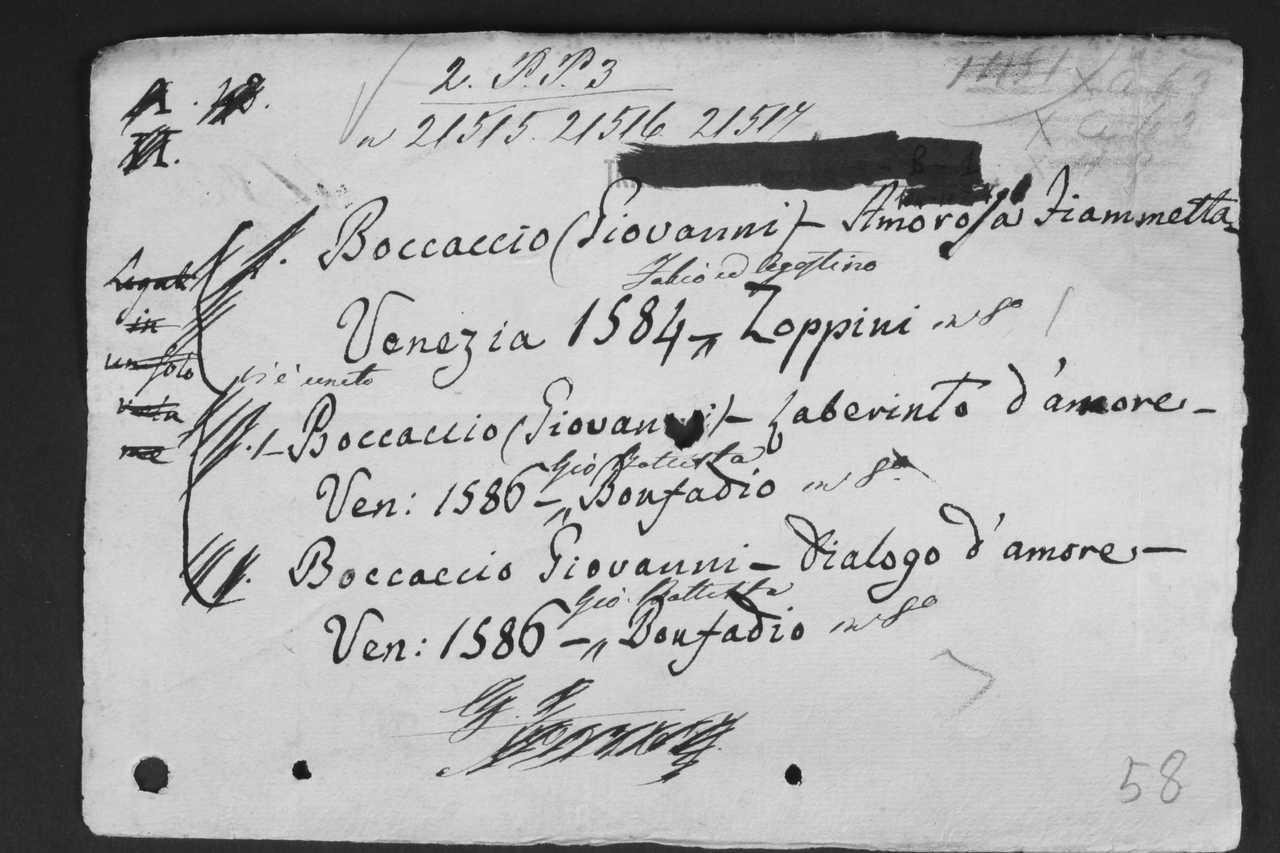 2. P.P. 3
n 21515. 21516. 21517
Boccaccio (Giovanni) - Amorosa Fiammetta -
Fabio ed Agostino
Venezia 1584 - „ Zoppini in 8º
Legati
in
un solo
volu
me
vi è unito
1 - Boccaccio (Giovanni) - Laberinto d'amore -
Gio Battista
Ven: 1586 - „ Bonfadio in 8º
Boccaccio Giovanni - Dialogo d'amore -
Gio. Battista
Ven: 1586 - „ Bonfadio in 8º
58